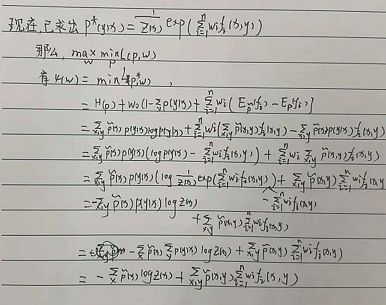 现在,已求出 P*(y|x) = 1/Z(x) exp(Σ_{i=1}^n wi fi(x,y))
那么, max_w min_p L(p,w)
有 Ψ(w) = min L(P*,w),
= H(p) + w0(1-Σ_y p(y|x)) + Σ_{i=1}^n wi (E_p̃(fi) - E_p(fi))
= Σ_{x,y} p̃(x) p(y|x) log p(y|x) + Σ_{i=1}^n wi (Σ_{x,y} p̃(x,y) fi(x,y) - Σ_{x,y} p̃(x) p(y|x) fi(x,y))
= Σ_{x,y} p̃(x) p(y|x) (log p(y|x) - Σ_{i=1}^n wi fi(x,y)) + Σ_{i=1}^n wi Σ_{x,y} p̃(x,y) fi(x,y)
= Σ_{x,y} p̃(x) p(y|x) (log 1/Z(x) exp(Σ_{i=1}^n wi fi(x,y)) + Σ_{x,y} p̃(x,y) Σ_{i=1}^n wi fi(x,y)
- Σ_{i=1}^n wi fi(x,y)
= -Σ_{x,y} p̃(x) p(y|x) log Z(x)
+ Σ_{x,y} p̃(x,y) Σ_{i=1}^n wi fi(x,y)
= - Σ_x p̃(x) Σ_y p(y|x) log Z(x) + Σ_{x,y} p̃(x,y) Σ_{i=1}^n wi fi(x,y)
= - Σ_x p̃(x) log Z(x) + Σ_{x,y} p̃(x,y) Σ_{i=1}^n wi fi(x,y)